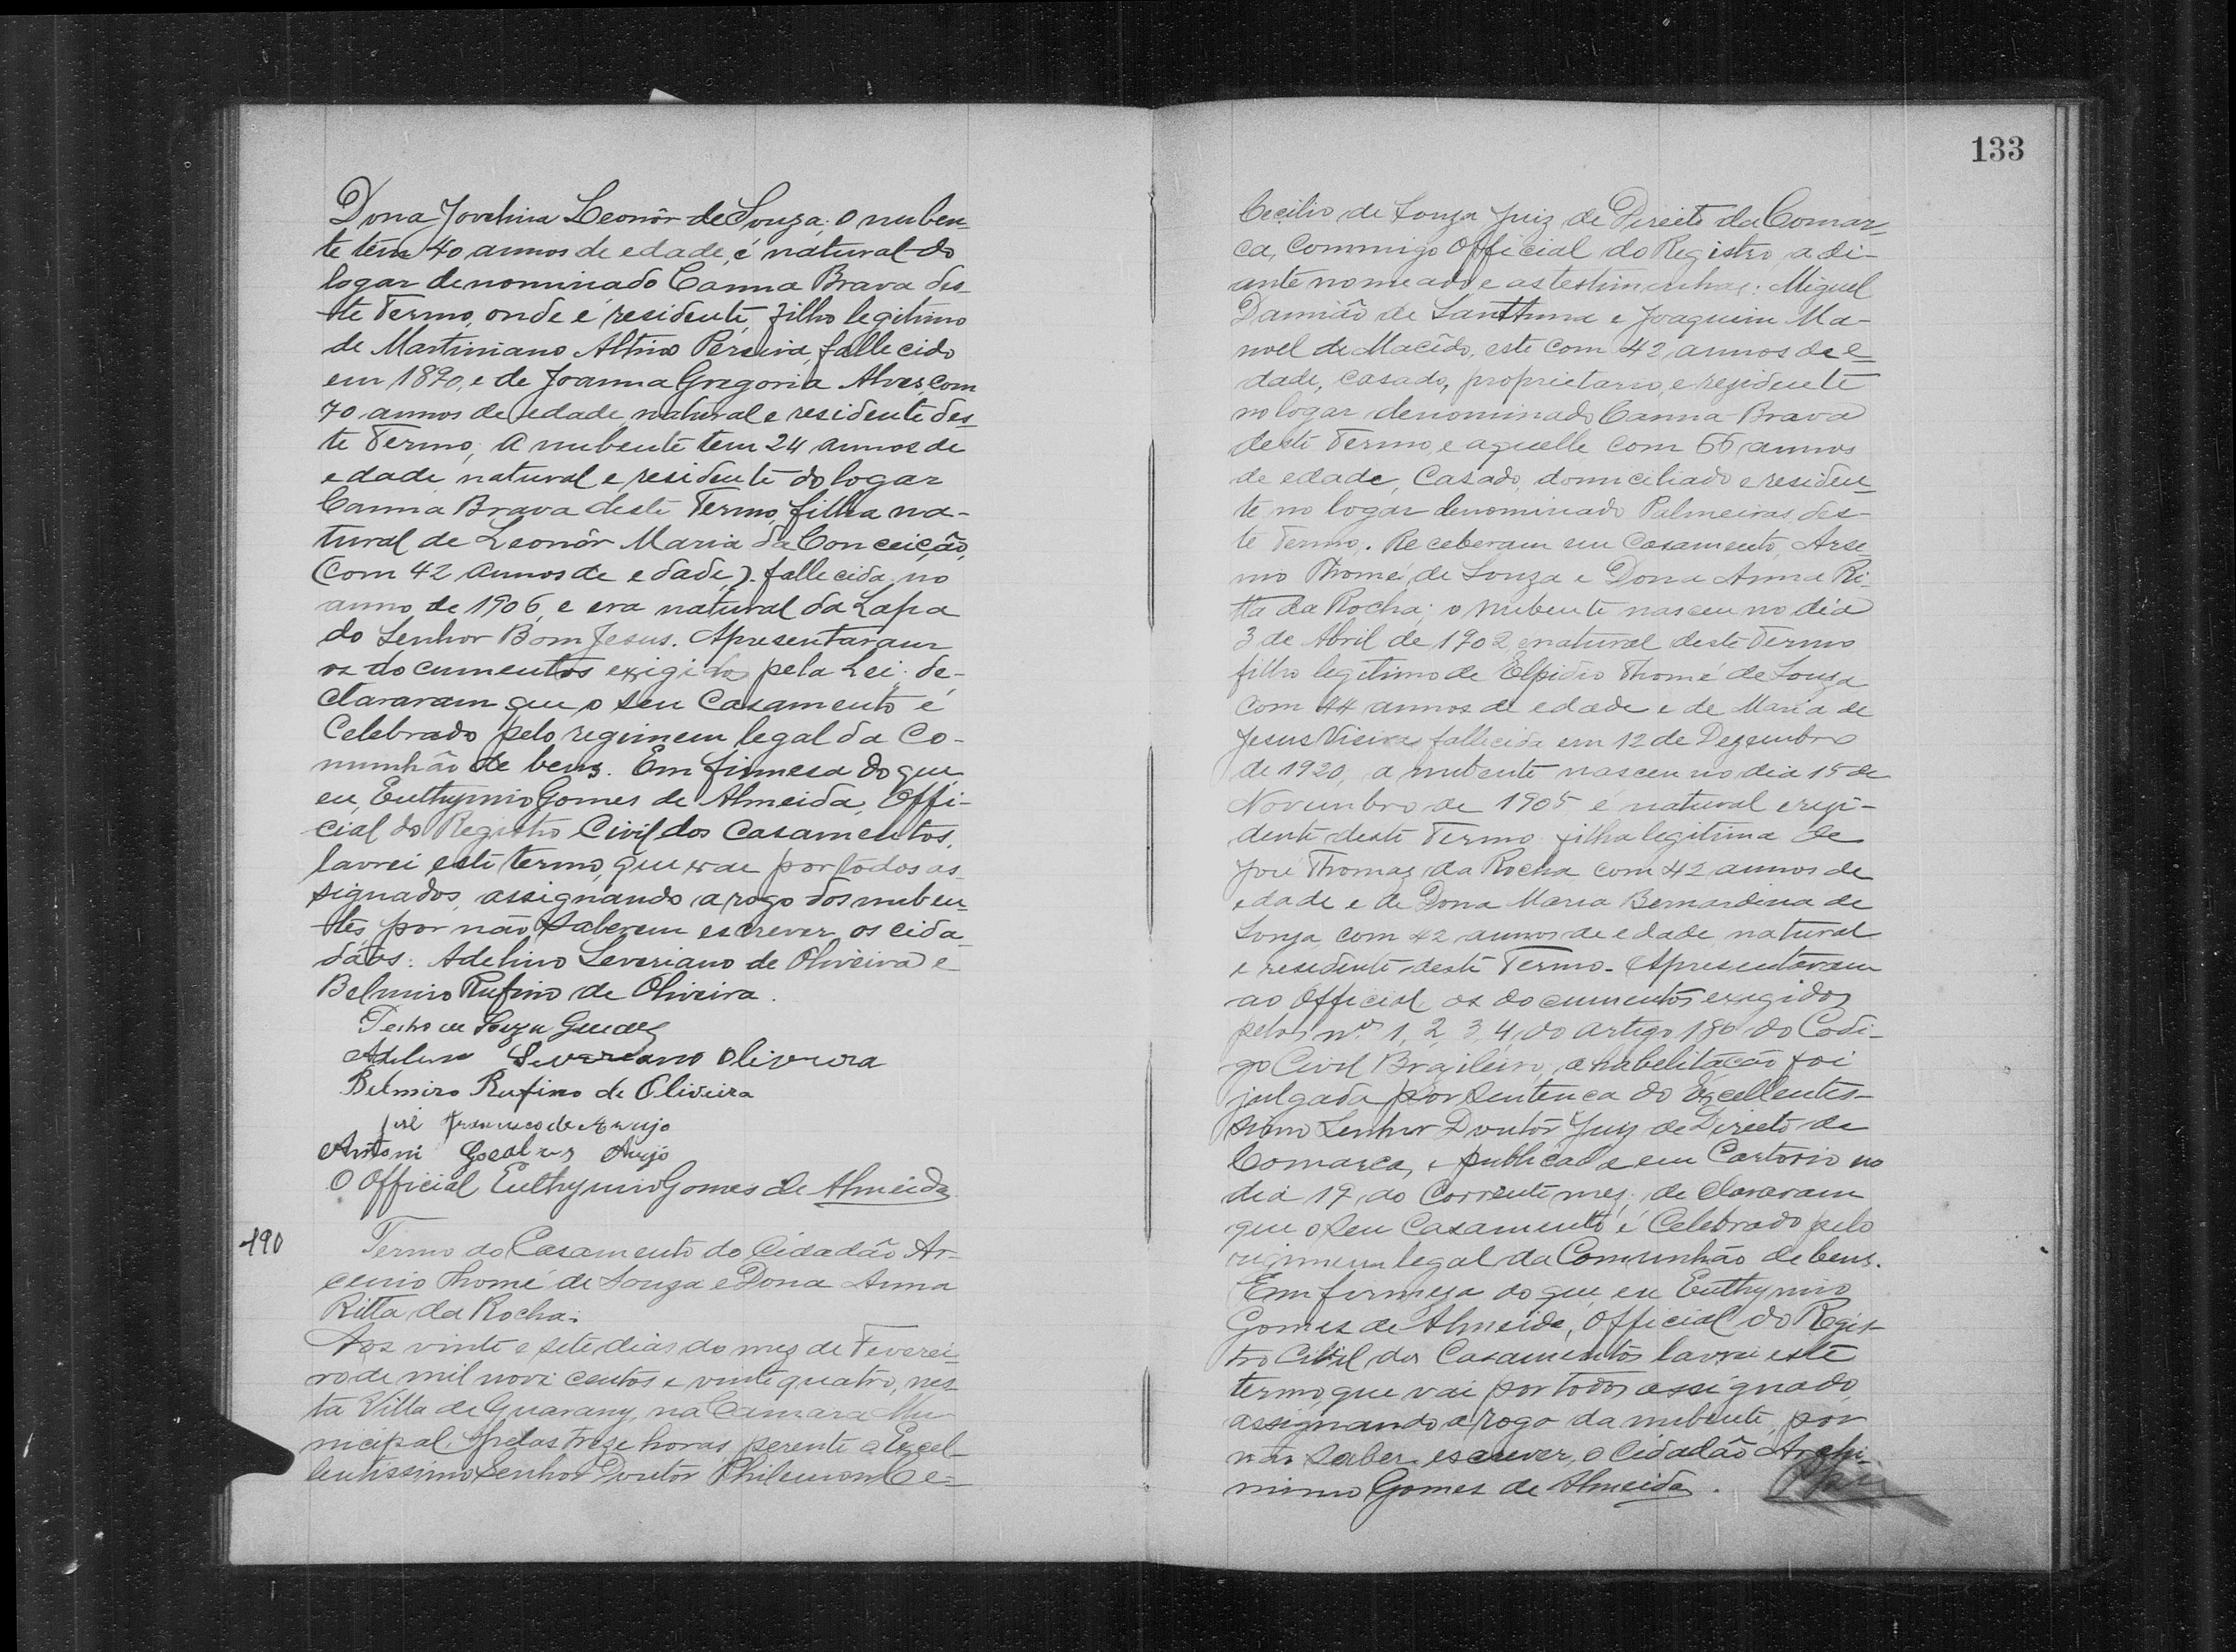 Dona Jovelina Leonôr de Souza; o nuben-
te tem 40 annos de edade, é natural do
logar denominado Canna Brava des-
te Termo, onde é residente, filho legitimo
de Martiniano Altino Pereira, fallecido
em 1890, e de Joanna Gregoria Alves, com
70 annos de edade, natural e residente des-
te Termo; a nubente tem 24 annos de
edade natural e residente do logar
Canna Brava deste Termo, filha na-
tural de Leonôr Maria da Conceição,
(com 42 annos de edade). fallecida no
anno de 1906, e era natural da Lapa
do Senhor Bom Jesus. Apresentaram
os documentos exigidos pela Lei; de-
clararam que o seu Casamento é
Celebrado pelo regimem legal da Co-
munhão de bens. Em firmesa do que
eu, Euthymio Gomes de Almeida, Offi-
cial do Registro Civil dos Casamentos,
lavrei este termo, que vae por todos as-
signados, assignando a rogo dos nuben-
tes por não saberem escrever, os cida-
dãos: Adelino Severiano de Oliveira e
Belmiro Rufino de Oliveira.
Pedro de Souza Guedes
Adelino Severiano Oliveira
Belmiro Rufino de Oliveira
José Francisco de Araujo
Antoni Araujo
O Official Euthymio Gomes de Almeida
190
Termo do Casamento do Cidadão Ar-
cenio Thomé de Souza e Dona Anna
Ritta da Rocha.
Aos vinte e sete dias do mez de Feverei-
ro de mil nove centos e vinte quatro, nes-
ta Villa de Guarany, na Camara Mu-
nicipal, pelas treze horas, perente o Excel-
lentissimo Senhor Doutor Philemon Ce-
133
Cecilio de Souza Juiz de Direito da Comar-
ca, Commigo Official do Registro, a di-
ante nomeado, e as testimunhas: Miguel
Damião de Santhana e Joaquim Ma-
noel de Macêdo, este com 42 annos de e-
dade, casado, proprietario, e rezidente
no logar denominado Canna-Brava
deste Termo, e aquelle com 66 annos
de edade, Casado, domiciliado e residen-
te no logar denominado Palmeiras des-
te Termo. Receberam em Casamento, Arse-
nio Thomé de Souza e Dona Anna Ri-
tta da Rocha; o nubente nasceu no dia
3 de Abril de 1902, e natural deste Termo
filho legitimo de Elpidio Thomé de Souza
com 44 annos de edade e de Maria de
Jesus Vieira fallecida em 12 de Dezembro
de 1920, a nubente nasceu no dia 15 de
Novembro de 1905 e natural e rezi-
dente deste Termo filha legitima de
José Thomaz da Rocha com 42 annos de
edade e de Dona Maria Bernardina de
Souza, com 42 annos de edade, natural
e residente deste Termo. Apresentaram
ao Official os documentos exigidos
pelos nos 1, 2, 3, 4, do artigo 180 do Codi-
go Civil Brazileiro, a habelitação foi
julgada por sentença do Excellentis-
simo Senhor Doutôr Juiz de Direito da
Comarca, e publicada em Cartorio no
dia 19, do Corrente mez; declararam
que o seu Casamento é Celebrado pelo
regimem legal da Comunhão de bens.
Em firmeza do que eu Euthymio
Gomes de Almeida, Official do Regis-
tro Civil dos Casamentos lavrei este
termo, que vai por todos assignado,
assignando a rogo da nubente, por
não saber escrever, o Cidadão Archi-
mimo Gomes de Almeida.